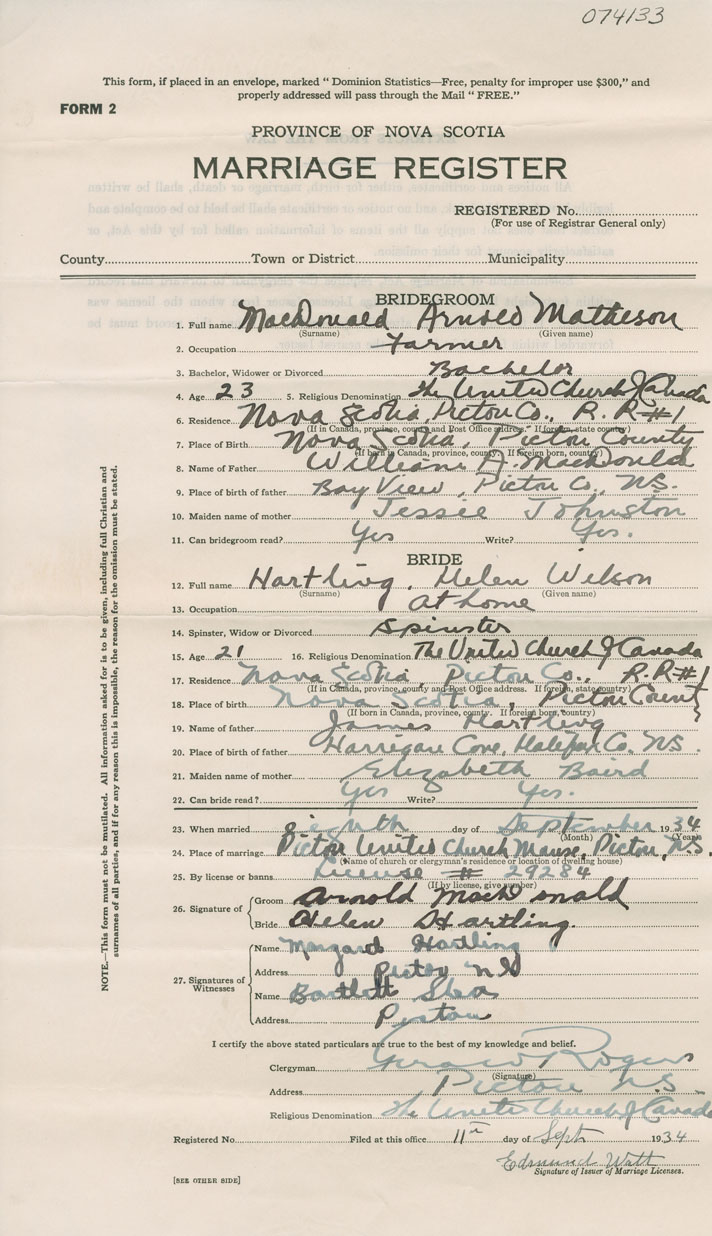 074133
This form, if placed in an envelope, marked “ Dominion Statistics—Free, penalty for improper use $300,” and
properly addressed will pass through the Mail “ FREE.”
FORM 2
PROVINCE OF NOVA SCOTIA
MARRIAGE REGISTER
REGISTERED No.
(For use of Registrar General only)
County Town or District Municipality
BRIDEGROOM
1. Full name MacDonald Arnold Matheson
(Surname) (Given name)
2. Occupation Farmer
3. Bachelor, Widower or Divorced Bachelor
4. Age 23 5. Religious Denomination The United Church of Canada
6. Residence Nova Scotia, Pictou Co., R. R #1
(If in Canada, province, county and Post Office address. If foreign, state country)
7. Place of Birth Nova Scotia, Pictou County
(If born in Canada, province, county. If foreign born, country)
8. Name of Father William A. MacDonald
9. Place of birth of father Bay View, Pictou Co., N.S.
10. Maiden name of mother Jessie Johnston
11. Can bridegroom read? Yes Write? Yes.
BRIDE
12. Full name Hartling, Helen Wilson
(Surname) (Given name)
13. Occupation at home
14. Spinster, Widow or Divorced Spinster
15. Age 21 16. Religious Denomination The United Church of Canada
17. Residence Nova Scotia, Pictou Co., R.R #1
(If in Canada, province, county and Post Office address. If foreign, state country)
18. Place of birth Nova Scotia, Pictou County
(If born in Canada, province, county. If foreign born, country)
19. Name of father James Hartling
20. Place of birth of father Harrigan Cove, Halifax Co. N.S.
21. Maiden name of mother Elizabeth Baird
22. Can bride read? Yes Write? Yes.
23. When married Eighth day of September 1934
(Month) (Year)
24. Place of marriage Pictou United Church Manse, Pictou, N.S.
(Name of church or clergyman's residence or location of dwelling house)
25. By license or banns License # 29284
(If by license, give number)
26. Signature of Groom Arnold MacDonald
Bride Helen Hartling.
27. Signatures of Witnesses
Name Margaret Hartling
Address Pictou N S
Name Bartlett
Address Pictou
I certify the above stated particulars are true to the best of my knowledge and belief.
Clergyman Rogers
(Signature)
Address Pictou N.S.
Religious Denomination The United Church of Canada
Registered No. Filed at this office 11th day of Sept 1934
Edmund Watt
Signature of Issuer of Marriage Licenses.
[SEE OTHER SIDE]
NOTE.—This form must not be mutilated. All information asked for is to be given, including full Christian and
surnames of all parties, and if for any reason this is impossible, the reason for the omission must be stated.